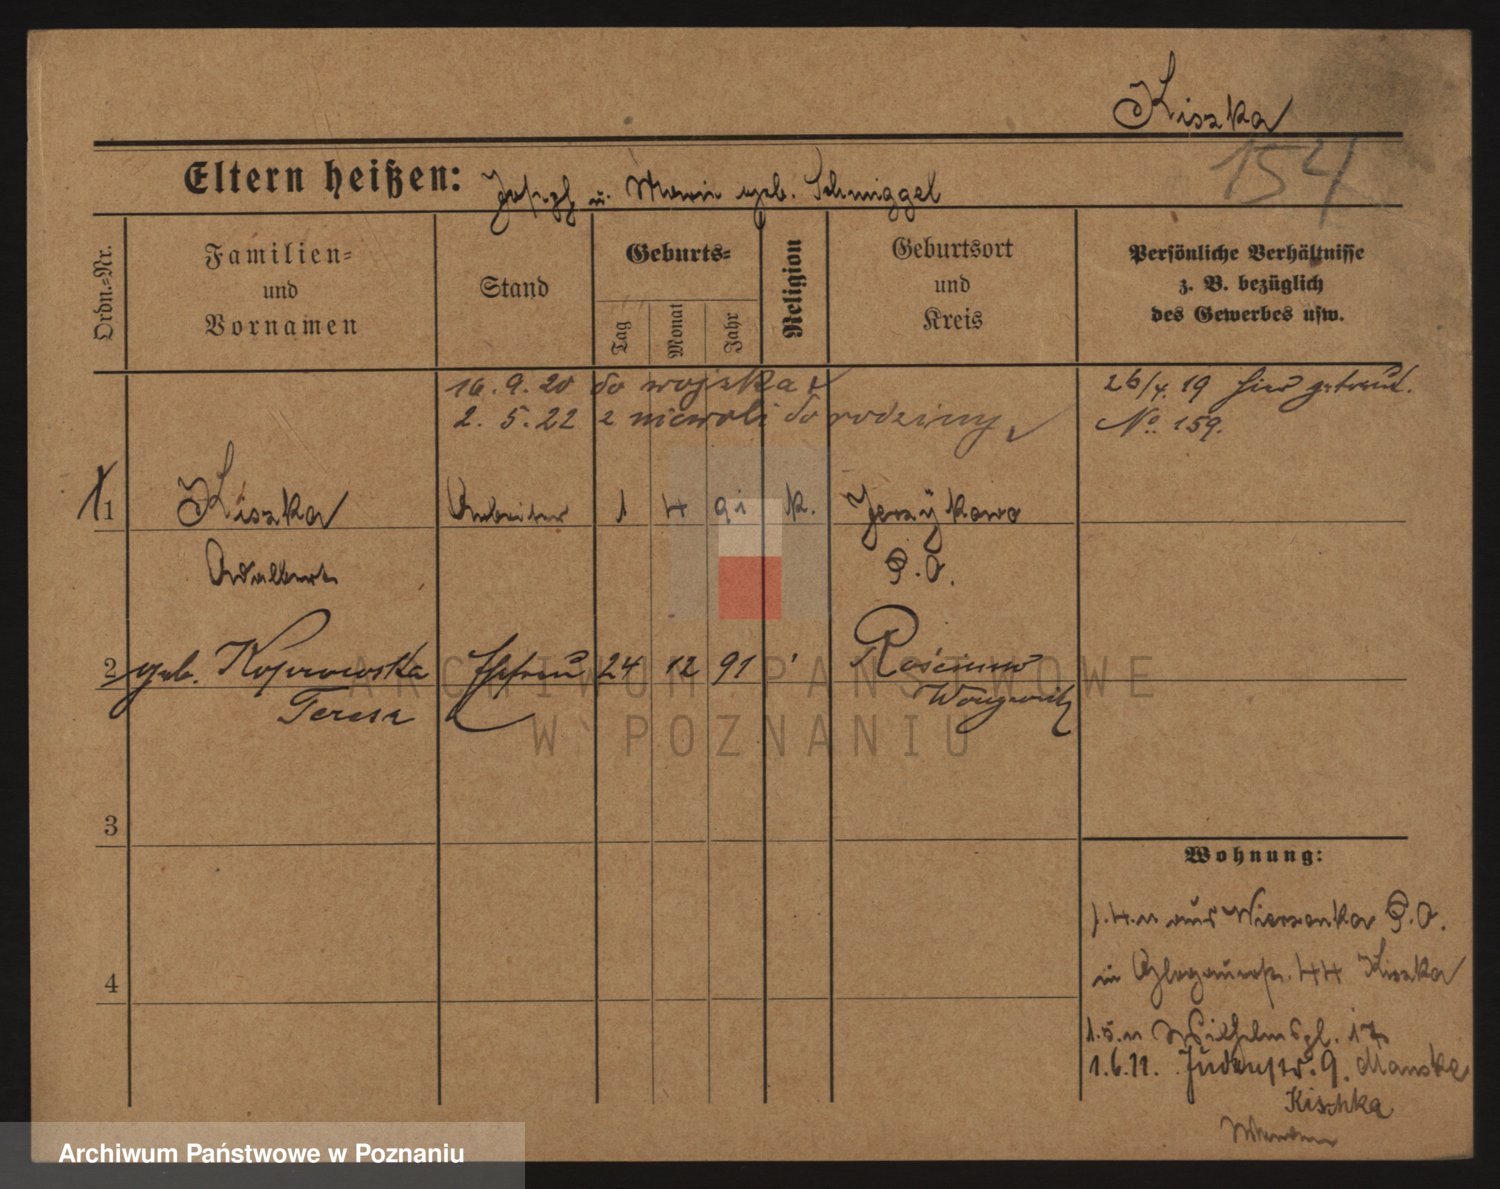 Kiszka
154
Eltern heißen: Joseph u. Marie geb. Schmiggel
Ordn.=Nr.
Familien=
und
Vornamen
Stand
Geburts=
Tag
Monat
Jahr
Religion
Geburtsort
und
Kreis
Persönliche Verhältnisse
z. B. bezüglich
des Gewerbes usw.
16. 9. 20 do wojska
2. 5. 22 z niewoli do rodziny
26/4. 19 hier getraut.
No. 159.
1 Kiszka Arbeiter 1 4 91 k. Jerzykowo
Adalbert P. O.
2 geb. Koperowska Ehefrau 24 12 91 Rościnno
Teresa Wongrowitz
3
4
Wohnung:
1.4.11 aus Wierzonka P. O.
in Glogauerstr. 44 Kiszka
1.5.11 Wilhelmspl. 17
1.6.11. Judenstr. 9. Manske
Kischka
ARCHIWUM PAŃSTWOWE
W POZNANIU
Archiwum Państwowe w Poznaniu